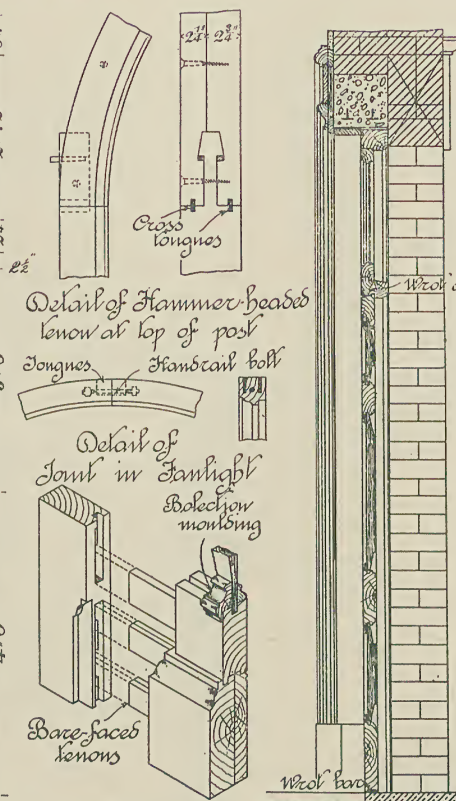 2¼" 2¾"
Cross
tongues
2½"
Detail of Hammer-headed
tenon at top of post
Tongues Handrail bolt
Detail of
Joint in Fanlight
Bolection
moulding
Bare-faced
tenons
Wrot
Wrot bar